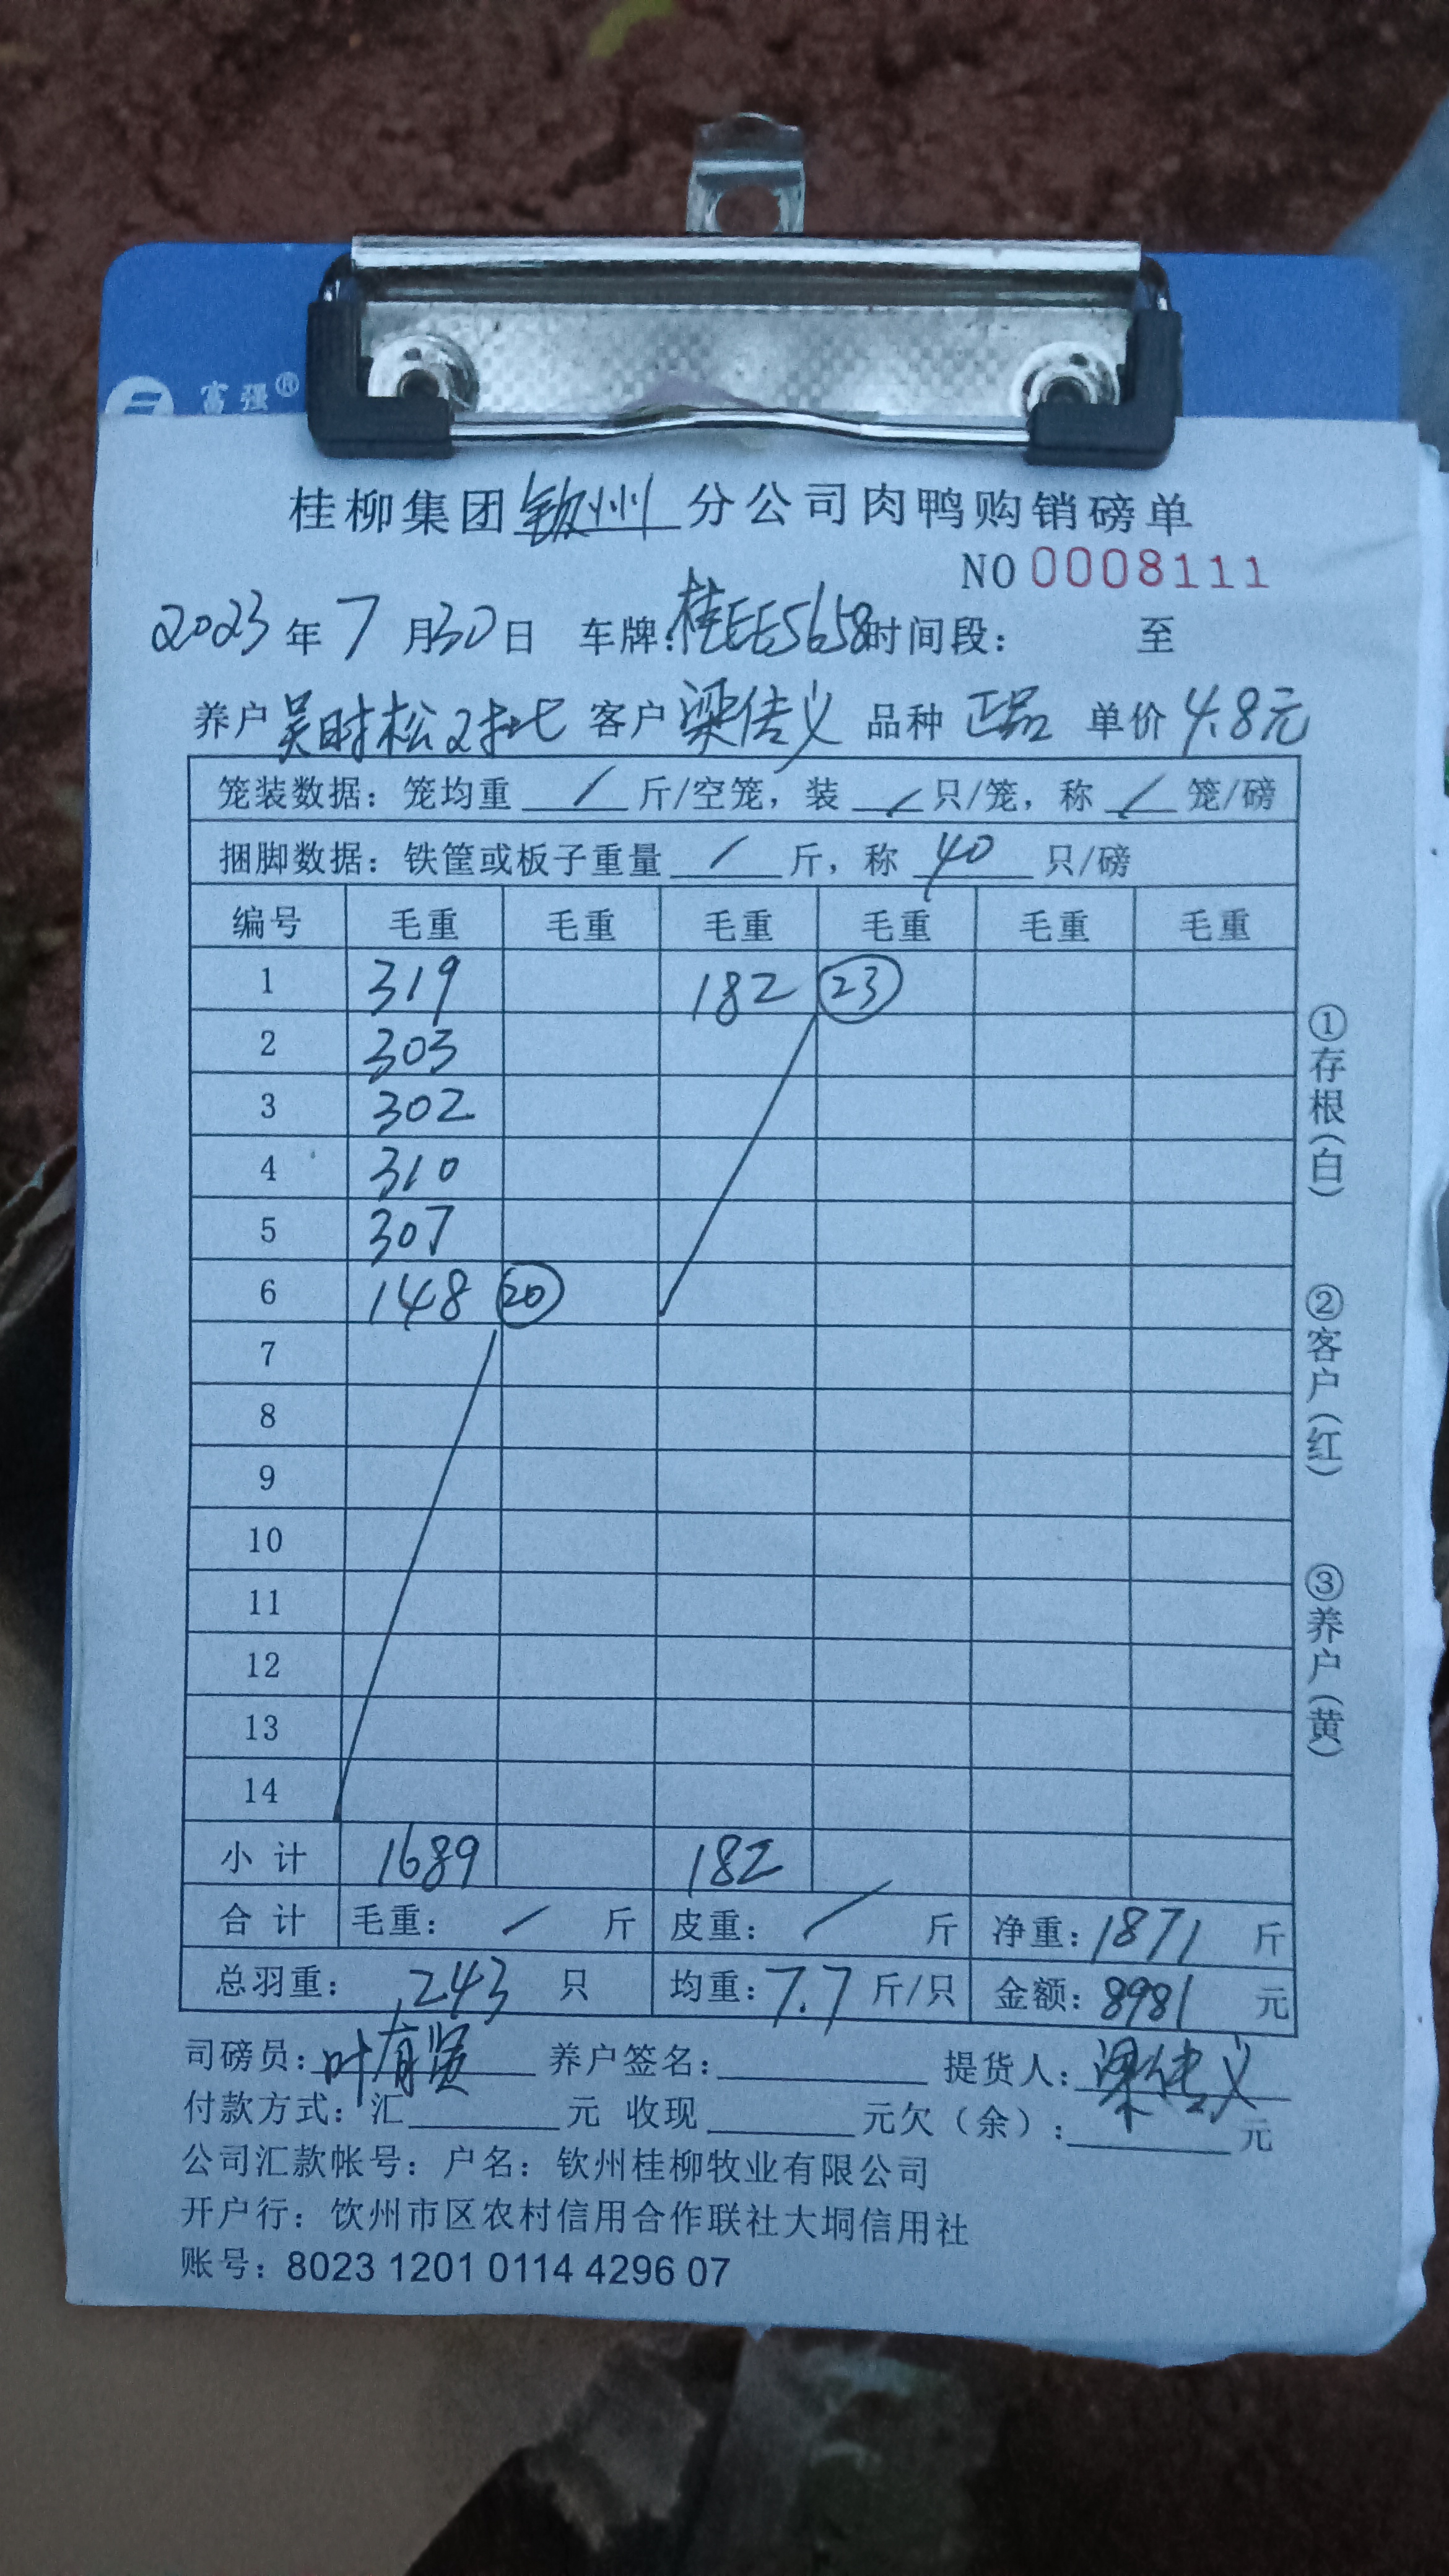 富强®
桂柳集团钦州分公司肉鸭购销磅单
NO 0008111
2023年7月30日 车牌:桂EE5658时间段: 至
养户吴时松对比 客户梁传义 品种 正品 单价4.8元
笼装数据:笼均重 / 斤/空笼,装 / 只/笼,称 / 笼/磅
捆脚数据:铁筐或板子重量 / 斤,称 40 只/磅
编号 毛重 毛重 毛重 毛重 毛重 毛重
1 319 182 23
2 303
3 302
4 310
5 307
6 148 20
7
8
9
10
11
12
13
14
小计 1689 182
合计 毛重: / 斤 皮重: / 斤 净重:1871 斤
总羽重: 243 只 均重:7.7 斤/只 金额:8981 元
司磅员:叶有贤 养户签名: 提货人:梁传义
付款方式:汇 元 收现 元欠(余): 元
公司汇款帐号:户名:钦州桂柳牧业有限公司
开户行:饮州市区农村信用合作联社大垌信用社
账号:8023 1201 0114 4296 07
①存根(白)
②客户(红)
③养户(黄)